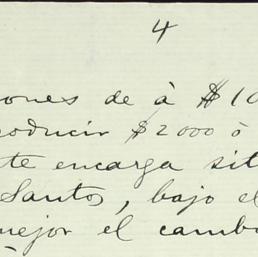 4
ones de à $10
roducir $2000 ó
te encarga sit
Santos, bajo el
mejor el camb